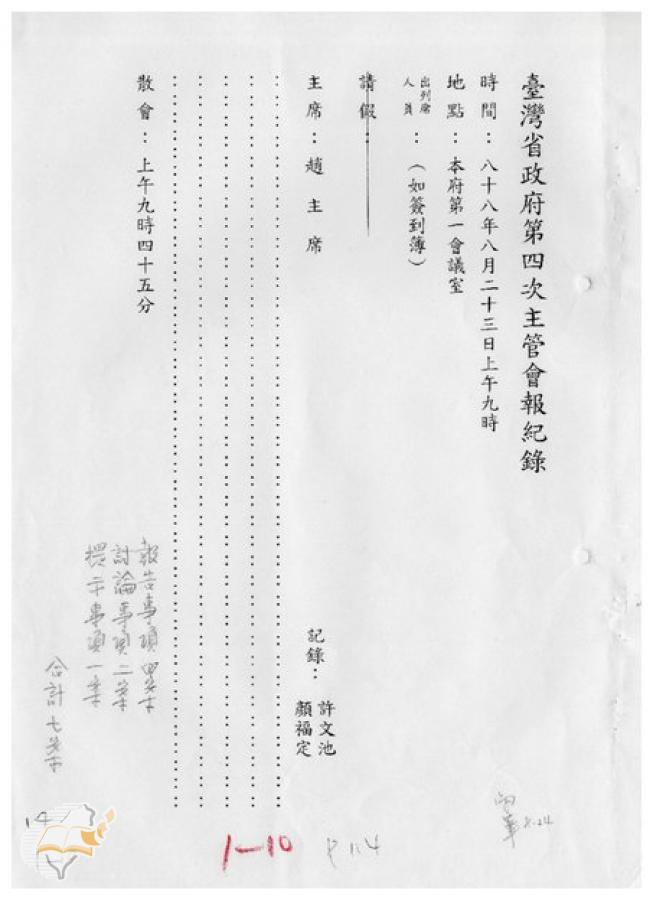 臺灣省政府第四次主管會報紀錄
時間：八十八年八月二十三日上午九時
地點：本府第一會議室
出列席人員：（如簽到薄）
請假：
主席：趙主席
記錄：許文池
顏福定
散會：上午九時四十五分
報告事項四案
討論事項二案
提示事項一案
合計七案
14
1-10
P 1.4
8.24